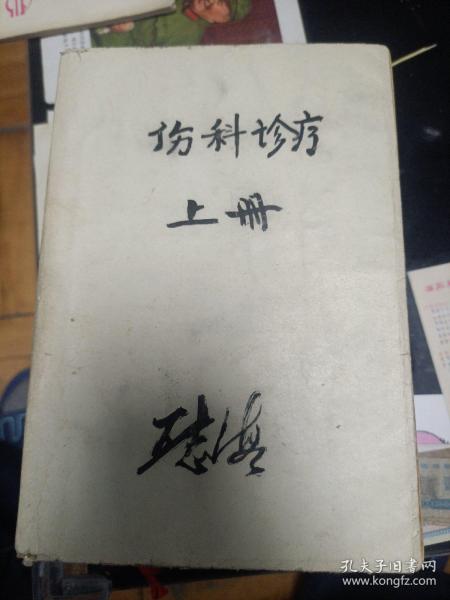 伤科诊疗
上册
孔夫子旧书网
www.kongfz.com